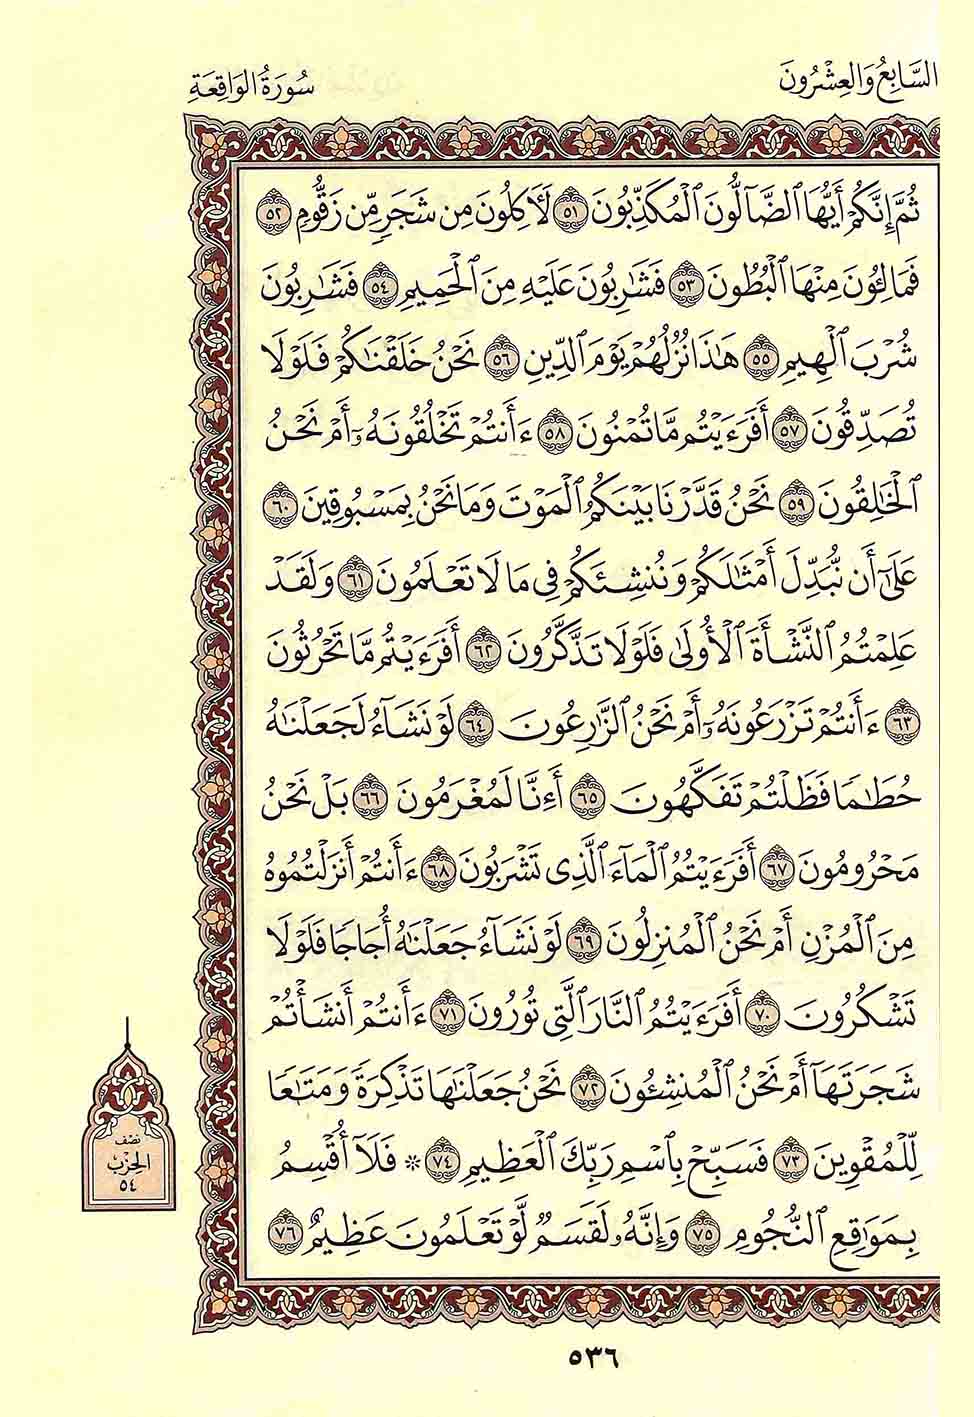 السَّابِعُ وَالعِشْرُونَ
سُورَةُ الوَاقِعَةِ
ثُمَّ إِنَّكُمْ أَيُّهَا ٱلضَّآلُّونَ ٱلْمُكَذِّبُونَ ٥١ لَأَكِلُونَ مِن شَجَرٍ مِّن زَقُّومٍ ٥٢
فَمَالِـُٔونَ مِنْهَا ٱلْبُطُونَ ٥٣ فَشَٰرِبُونَ عَلَيْهِ مِنَ ٱلْحَمِيمِ ٥٤ فَشَٰرِبُونَ
شُرْبَ ٱلْهِيمِ ٥٥ هَٰذَا نُزُلُهُمْ يَوْمَ ٱلدِّينِ ٥٦ نَحْنُ خَلَقْنَٰكُمْ فَلَوْلَا
تُصَدِّقُونَ ٥٧ أَفَرَءَيْتُم مَّا تُمْنُونَ ٥٨ ءَأَنتُمْ تَخْلُقُونَهُۥٓ أَمْ نَحْنُ
ٱلْخَٰلِقُونَ ٥٩ نَحْنُ قَدَّرْنَا بَيْنَكُمُ ٱلْمَوْتَ وَمَا نَحْنُ بِمَسْبُوقِينَ ٦٠
عَلَىٰٓ أَن نُّبَدِّلَ أَمْثَٰلَكُمْ وَنُنشِئَكُمْ فِى مَا لَا تَعْلَمُونَ ٦١ وَلَقَدْ
عَلِمْتُمُ ٱلنَّشْأَةَ ٱلْأُولَىٰ فَلَوْلَا تَذَكَّرُونَ ٦٢ أَفَرَءَيْتُم مَّا تَحْرُثُونَ
٦٣ ءَأَنتُمْ تَزْرَعُونَهُۥٓ أَمْ نَحْنُ ٱلزَّٰرِعُونَ ٦٤ لَوْ نَشَآءُ لَجَعَلْنَٰهُ
حُطَٰمًا فَظَلْتُمْ تَفَكَّهُونَ ٦٥ أَءِنَّا لَمُغْرَمُونَ ٦٦ بَلْ نَحْنُ
مَحْرُومُونَ ٦٧ أَفَرَءَيْتُمُ ٱلْمَآءَ ٱلَّذِى تَشْرَبُونَ ٦٨ ءَأَنتُمْ أَنزَلْتُمُوهُ
مِنَ ٱلْمُزْنِ أَمْ نَحْنُ ٱلْمُنزِلُونَ ٦٩ لَوْ نَشَآءُ جَعَلْنَٰهُ أُجَاجًا فَلَوْلَا
تَشْكُرُونَ ٧٠ أَفَرَءَيْتُمُ ٱلنَّارَ ٱلَّتِى تُورُونَ ٧١ ءَأَنتُمْ أَنشَأْتُمْ
شَجَرَتَهَآ أَمْ نَحْنُ ٱلْمُنشِـُٔونَ ٧٢ نَحْنُ جَعَلْنَٰهَا تَذْكِرَةً وَمَتَٰعًا
لِّلْمُقْوِينَ ٧٣ فَسَبِّحْ بِٱسْمِ رَبِّكَ ٱلْعَظِيمِ ٧٤ * فَلَآ أُقْسِمُ
بِمَوَٰقِعِ ٱلنُّجُومِ ٧٥ وَإِنَّهُۥ لَقَسَمٌ لَّوْ تَعْلَمُونَ عَظِيمٌ ٧٦
نصف
الحزب
٥٤
٥٣٦